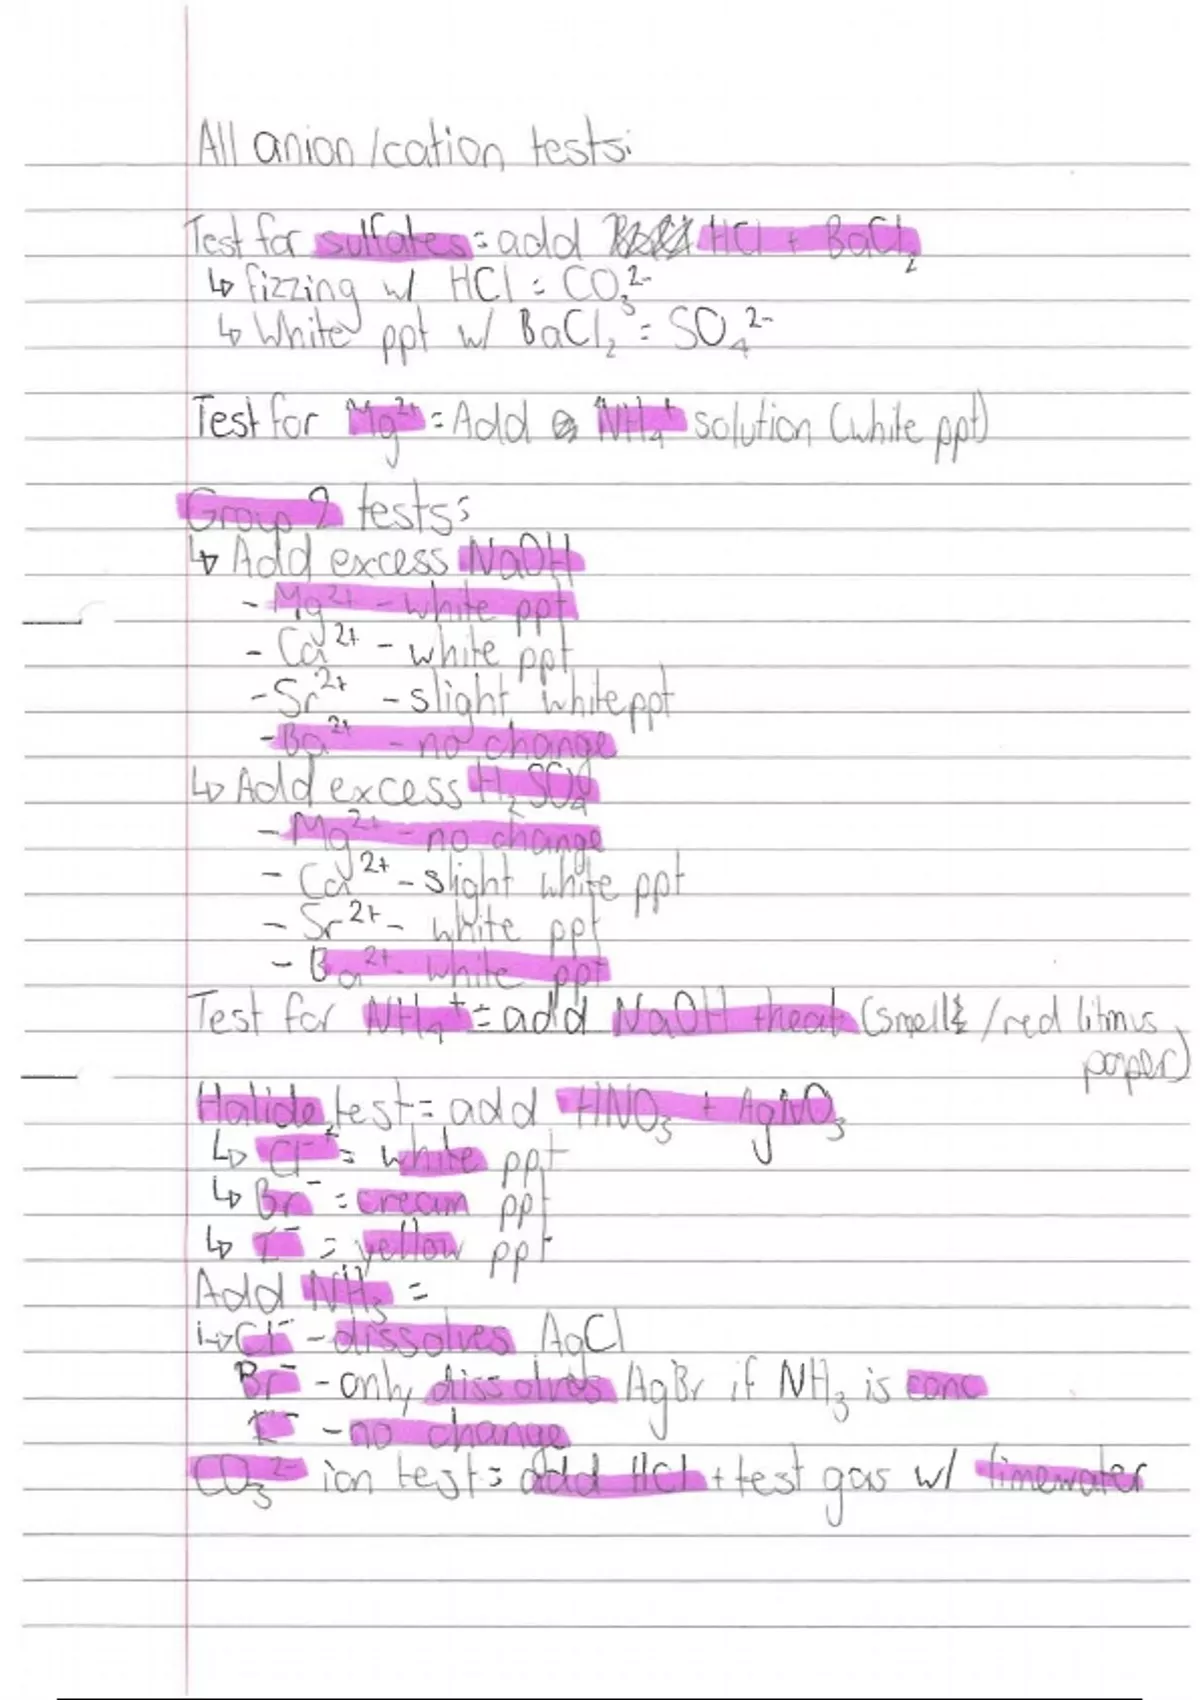 All anion/cation tests:
Test for sulfates = add HCl + BaCl₂
↳ fizzing w/ HCl = CO₃²⁻
↳ White ppt w/ BaCl₂ = SO₄²⁻
Test for Mg²⁺ = Add NH₄⁺ solution (white ppt)
Group 2 tests:
↳ Add excess NaOH
- Mg²⁺ - white ppt
- Ca²⁺ - white ppt
- Sr²⁺ - slight white ppt
- Ba²⁺ - no change
↳ Add excess H₂SO₄
- Mg²⁺ - no change
- Ca²⁺ - slight white ppt
- Sr²⁺ - white ppt
- Ba²⁺ - white ppt
Test for NH₄⁺ = add NaOH + heat (smell / red litmus
paper)
Halide test = add HNO₃ + AgNO₃
↳ Cl⁻ = white ppt
↳ Br⁻ = cream ppt
↳ I⁻ = yellow ppt
Add NH₃ =
↳ Cl⁻ - dissolves AgCl
Br⁻ - only dissolves AgBr if NH₃ is conc
I⁻ - no change
CO₃²⁻ ion test = add HCl + test gas w/ limewater